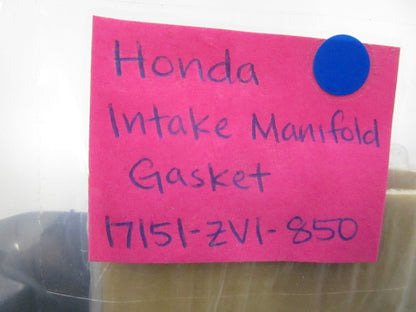 Honda
Intake Manifold
Gasket
17151-ZV1-850